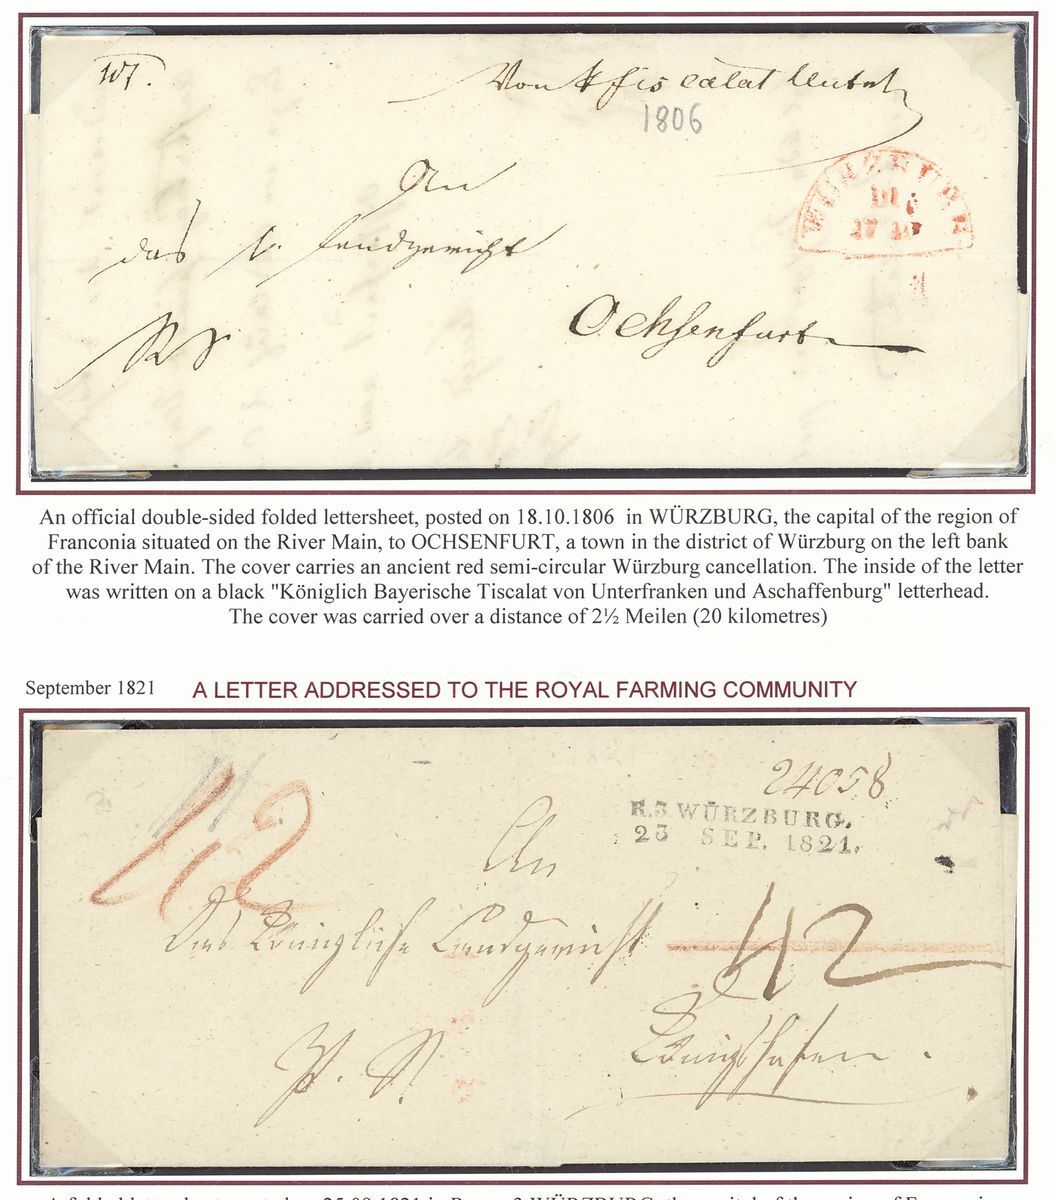 An
das k. Landgericht
Ochsenfurt
1806
WÜRZBURG
An official double-sided folded lettersheet, posted on 18.10.1806 in WÜRZBURG, the capital of the region of
Franconia situated on the River Main, to OCHSENFURT, a town in the district of Würzburg on the left bank
of the River Main. The cover carries an ancient red semi-circular Würzburg cancellation. The inside of the letter
was written on a black "Königlich Bayerische Tiscalat von Unterfranken und Aschaffenburg" letterhead.
The cover was carried over a distance of 2½ Meilen (20 kilometres)
September 1821 A LETTER ADDRESSED TO THE ROYAL FARMING COMMUNITY
24058
R.3.WÜRZBURG.
25 SEP. 1821.
42
An
Das Königliche Landgericht
42
Königshofen.